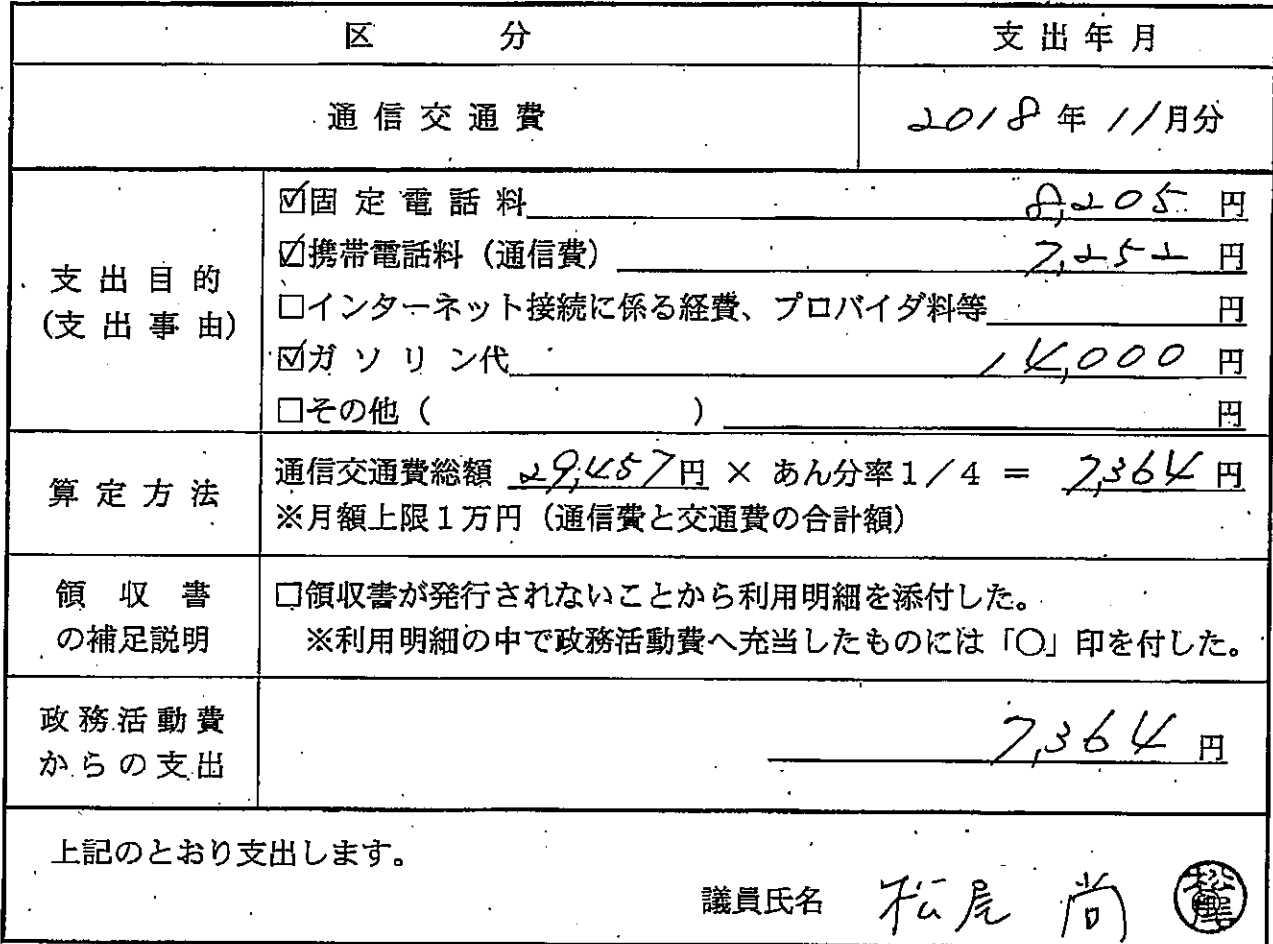 区 分 支出年月
通信交通費 2018年11月分
支出目的
(支出事由)
☑固定電話料 8,205 円
☑携帯電話料(通信費) 7,252 円
□インターネット接続に係る経費、プロバイダ料等 円
☑ガソリン代 14,000 円
□その他( ) 円
算定方法
通信交通費総額 29,457円 × あん分率1/4 = 7,364円
※月額上限1万円(通信費と交通費の合計額)
領収書
の補足説明
□領収書が発行されないことから利用明細を添付した。
※利用明細の中で政務活動費へ充当したものには「○」印を付した。
政務活動費
からの支出
7,364 円
上記のとおり支出します。
議員氏名 松尾 尚